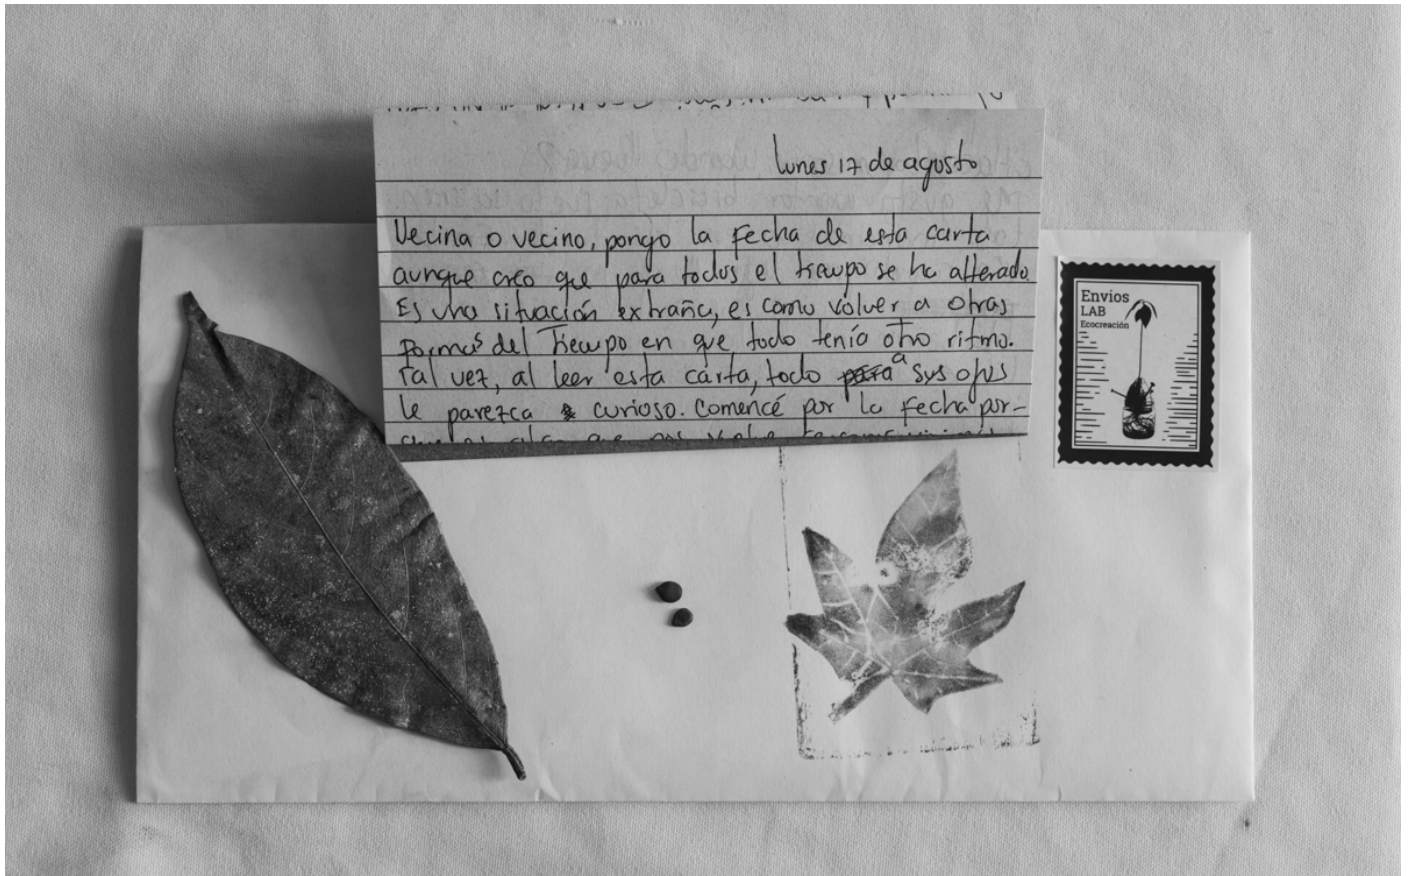 lunes 17 de agosto
Vecina o vecino, pongo la fecha de esta carta
aunque creo que para todos el tiempo se ha alterado
Es una situación extraña, es como volver a otras
formas del Tiempo en que todo tenía otro ritmo.
Tal vez, al leer esta carta, todo para a sus ojos
le parezca curioso. Comencé por la fecha por-
Envios
LAB
Ecocreación